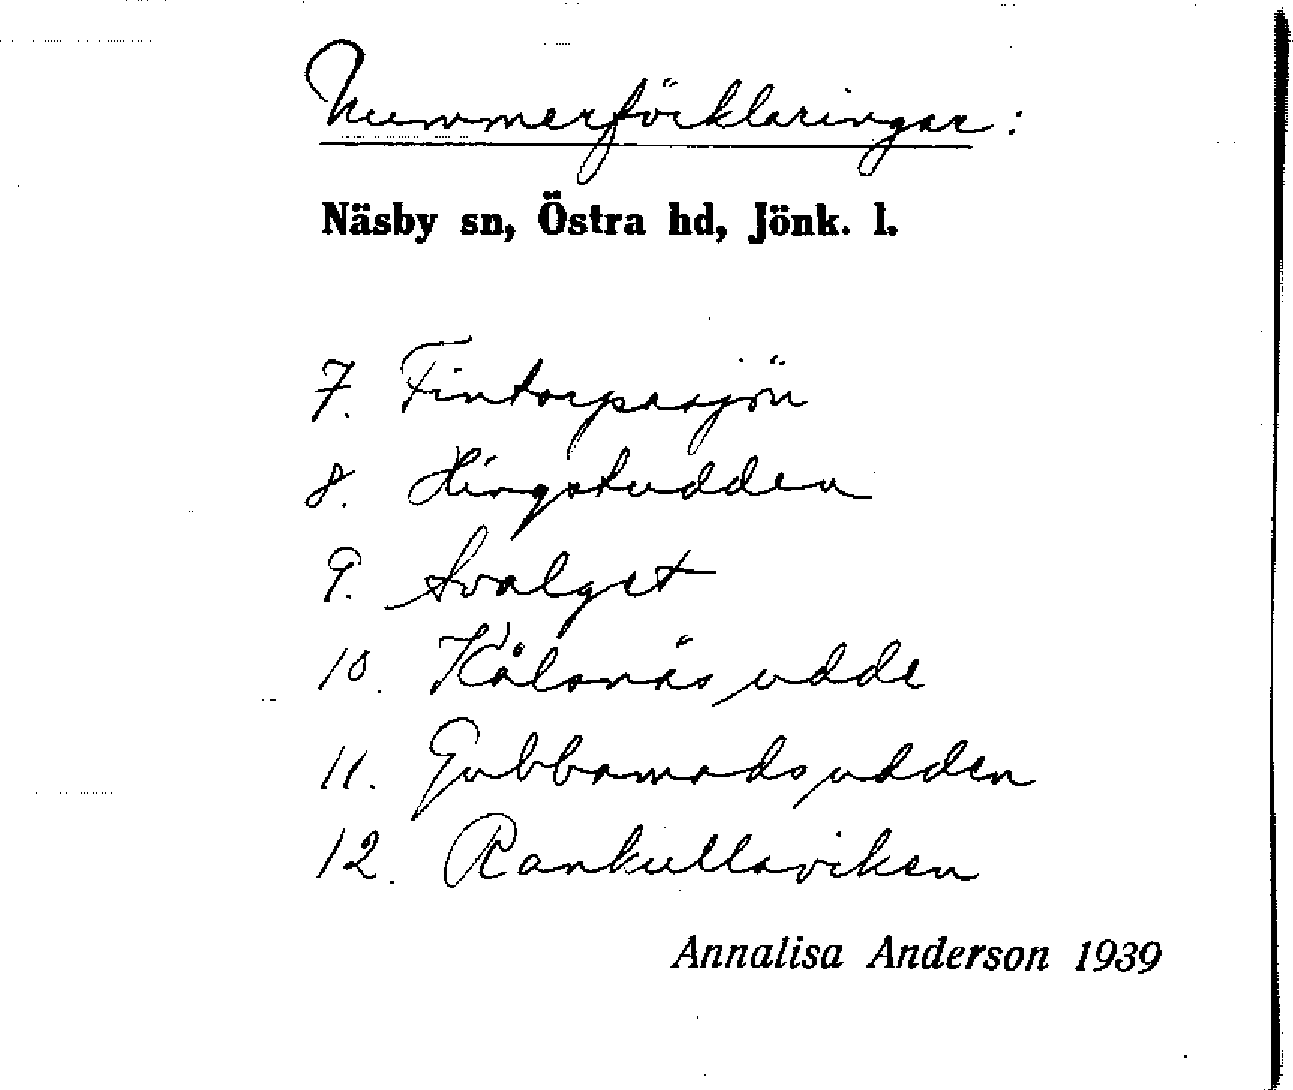 Nummerförklaringar:
Näsby sn, Östra hd, Jönk. l.
7. Fintorpasjön
8. Hingstudden
9. Svalget
10. Kålsnäs udde
11. Gubbamadsudden
12. Rankullaviken
Annalisa Anderson 1939